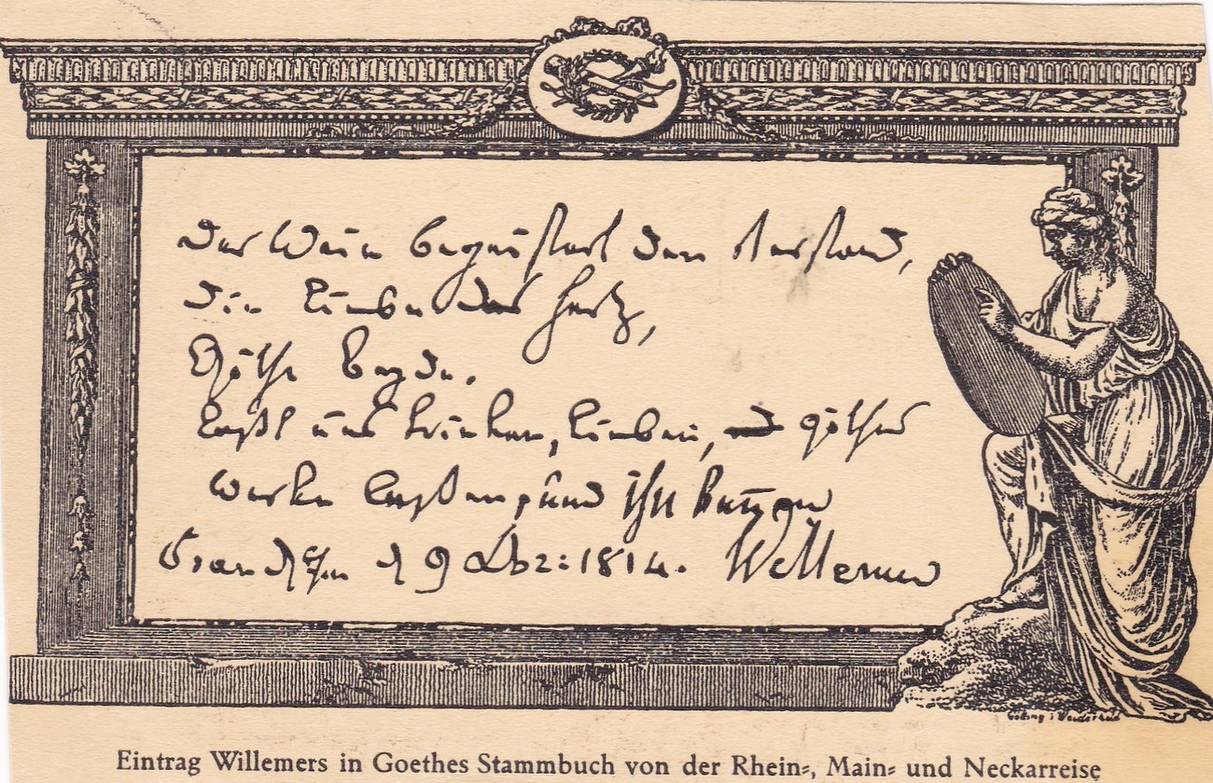 Der Wein begeistert den Verstand,
die Liebe das Herz,
Göthe beyde.
Laßt uns trinken, lieben, Göthes
Werke lesen, und ihn
d 9 1814. Willemer
Eintrag Willemers in Goethes Stammbuch von der Rhein-, Main- und Neckarreise